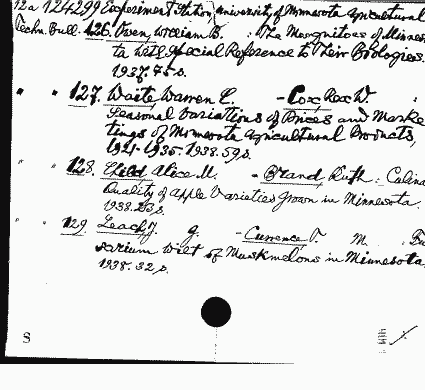 12a 124299 Experiment Station, University of Minnesota Agricultural
Techn. Bull. 126. Owen, William B. : The Mosquitoes of Minneso
ta with Special Reference to Their Biologies.
1937. 75 p.
" " 127. Waite, Warren C. - Cox, Rex W. :
Seasonal Variations of Prices and Marke
tings of Minnesota Agricultural Products,
1921-1935. 1938. 59 p.
" " 128. Child, Alice M. - Brand, Ruth : Culina
Quality of Apple Varieties Grown in Minnesota.
1938. 23 p.
" " 129. Leach, J. G. - Currence, T. M. Fu
sarium Wilt of Muskmelons in Minnesota
1938. 32 p.
S